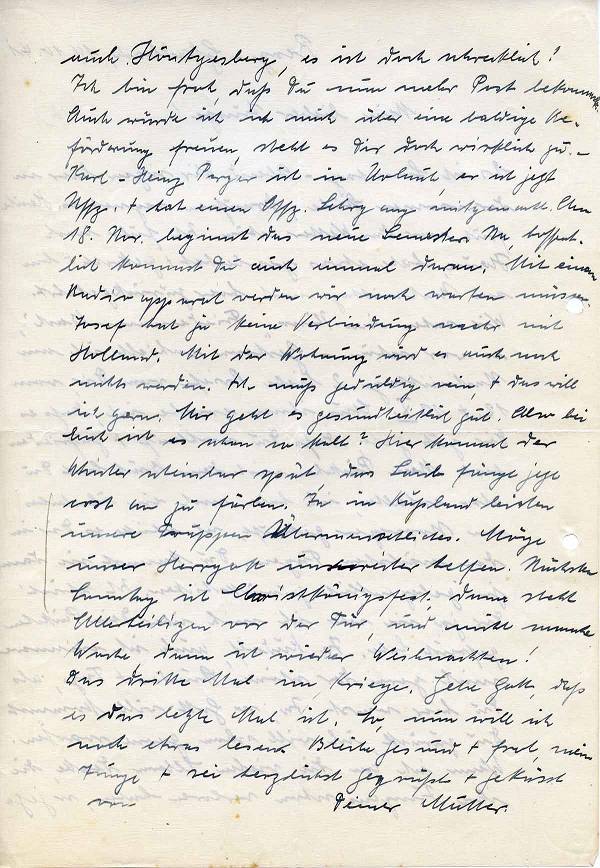 auch Höntgesberg, es ist doch schrecklich!
Ich bin froh, daß Du nun mehr Post bekommst.
Auch würde ich mich über eine baldige Be-
förderung freuen, steht es Dir doch wirklich zu. -
Karl-Heinz Perger ist in Urlaub, er ist jetzt
Uffz. + hat einen Offz. Lehrgang mitgemacht. Am
18. Nov. beginnt das neue Semester. Na, hoffent-
lich kommst Du auch einmal daran. Mit einem
Radioapparat werden wir noch warten müssen.
Josef hat ja keine Verbindung mehr mit
Holland. Mit der Wohnung wird es auch noch
nichts werden. Ich muß geduldig sein, + das will
ich gern. Mir geht es gesundheitlich gut. Also bei
Euch ist es schon so kalt? Hier kommt der
Winter scheinbar spät, das Laub fängt jetzt
erst an zu färben. Ja in Rußland leisten
unsere Truppen Übermenschliches. Möge
unser Herrgott uns weiter helfen. Nächsten
Sonntag ist Christkönigsfest, dann steht
Allerheiligen vor der Tür, und nicht manche
Woche, dann ist wieder Weihnachten!
Das dritte Mal im Kriege. Gebe Gott, daß
es das letzte Mal ist. So, nun will ich
noch etwas lesen. Bleibe gesund + froh, mein
Junge + sei herzlichst gegrüßt + geküsst
von Deiner Mutter.